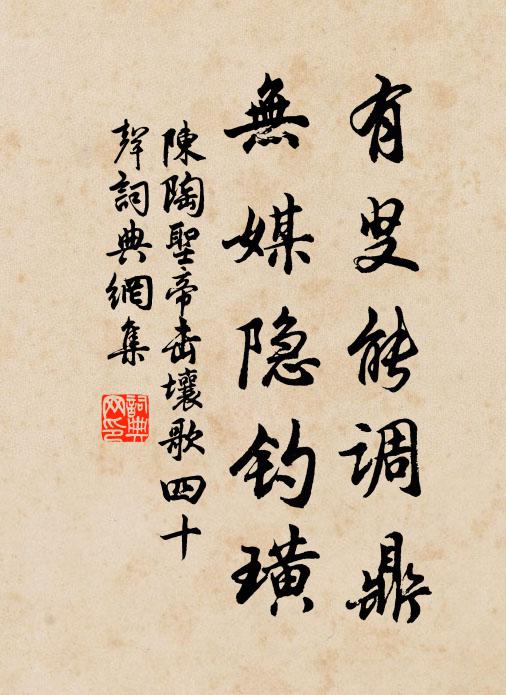 有叟能调鼎
無媒隐钓璜
陳陶聖帝击壤歌四十
聲詞典網集
詞典网印